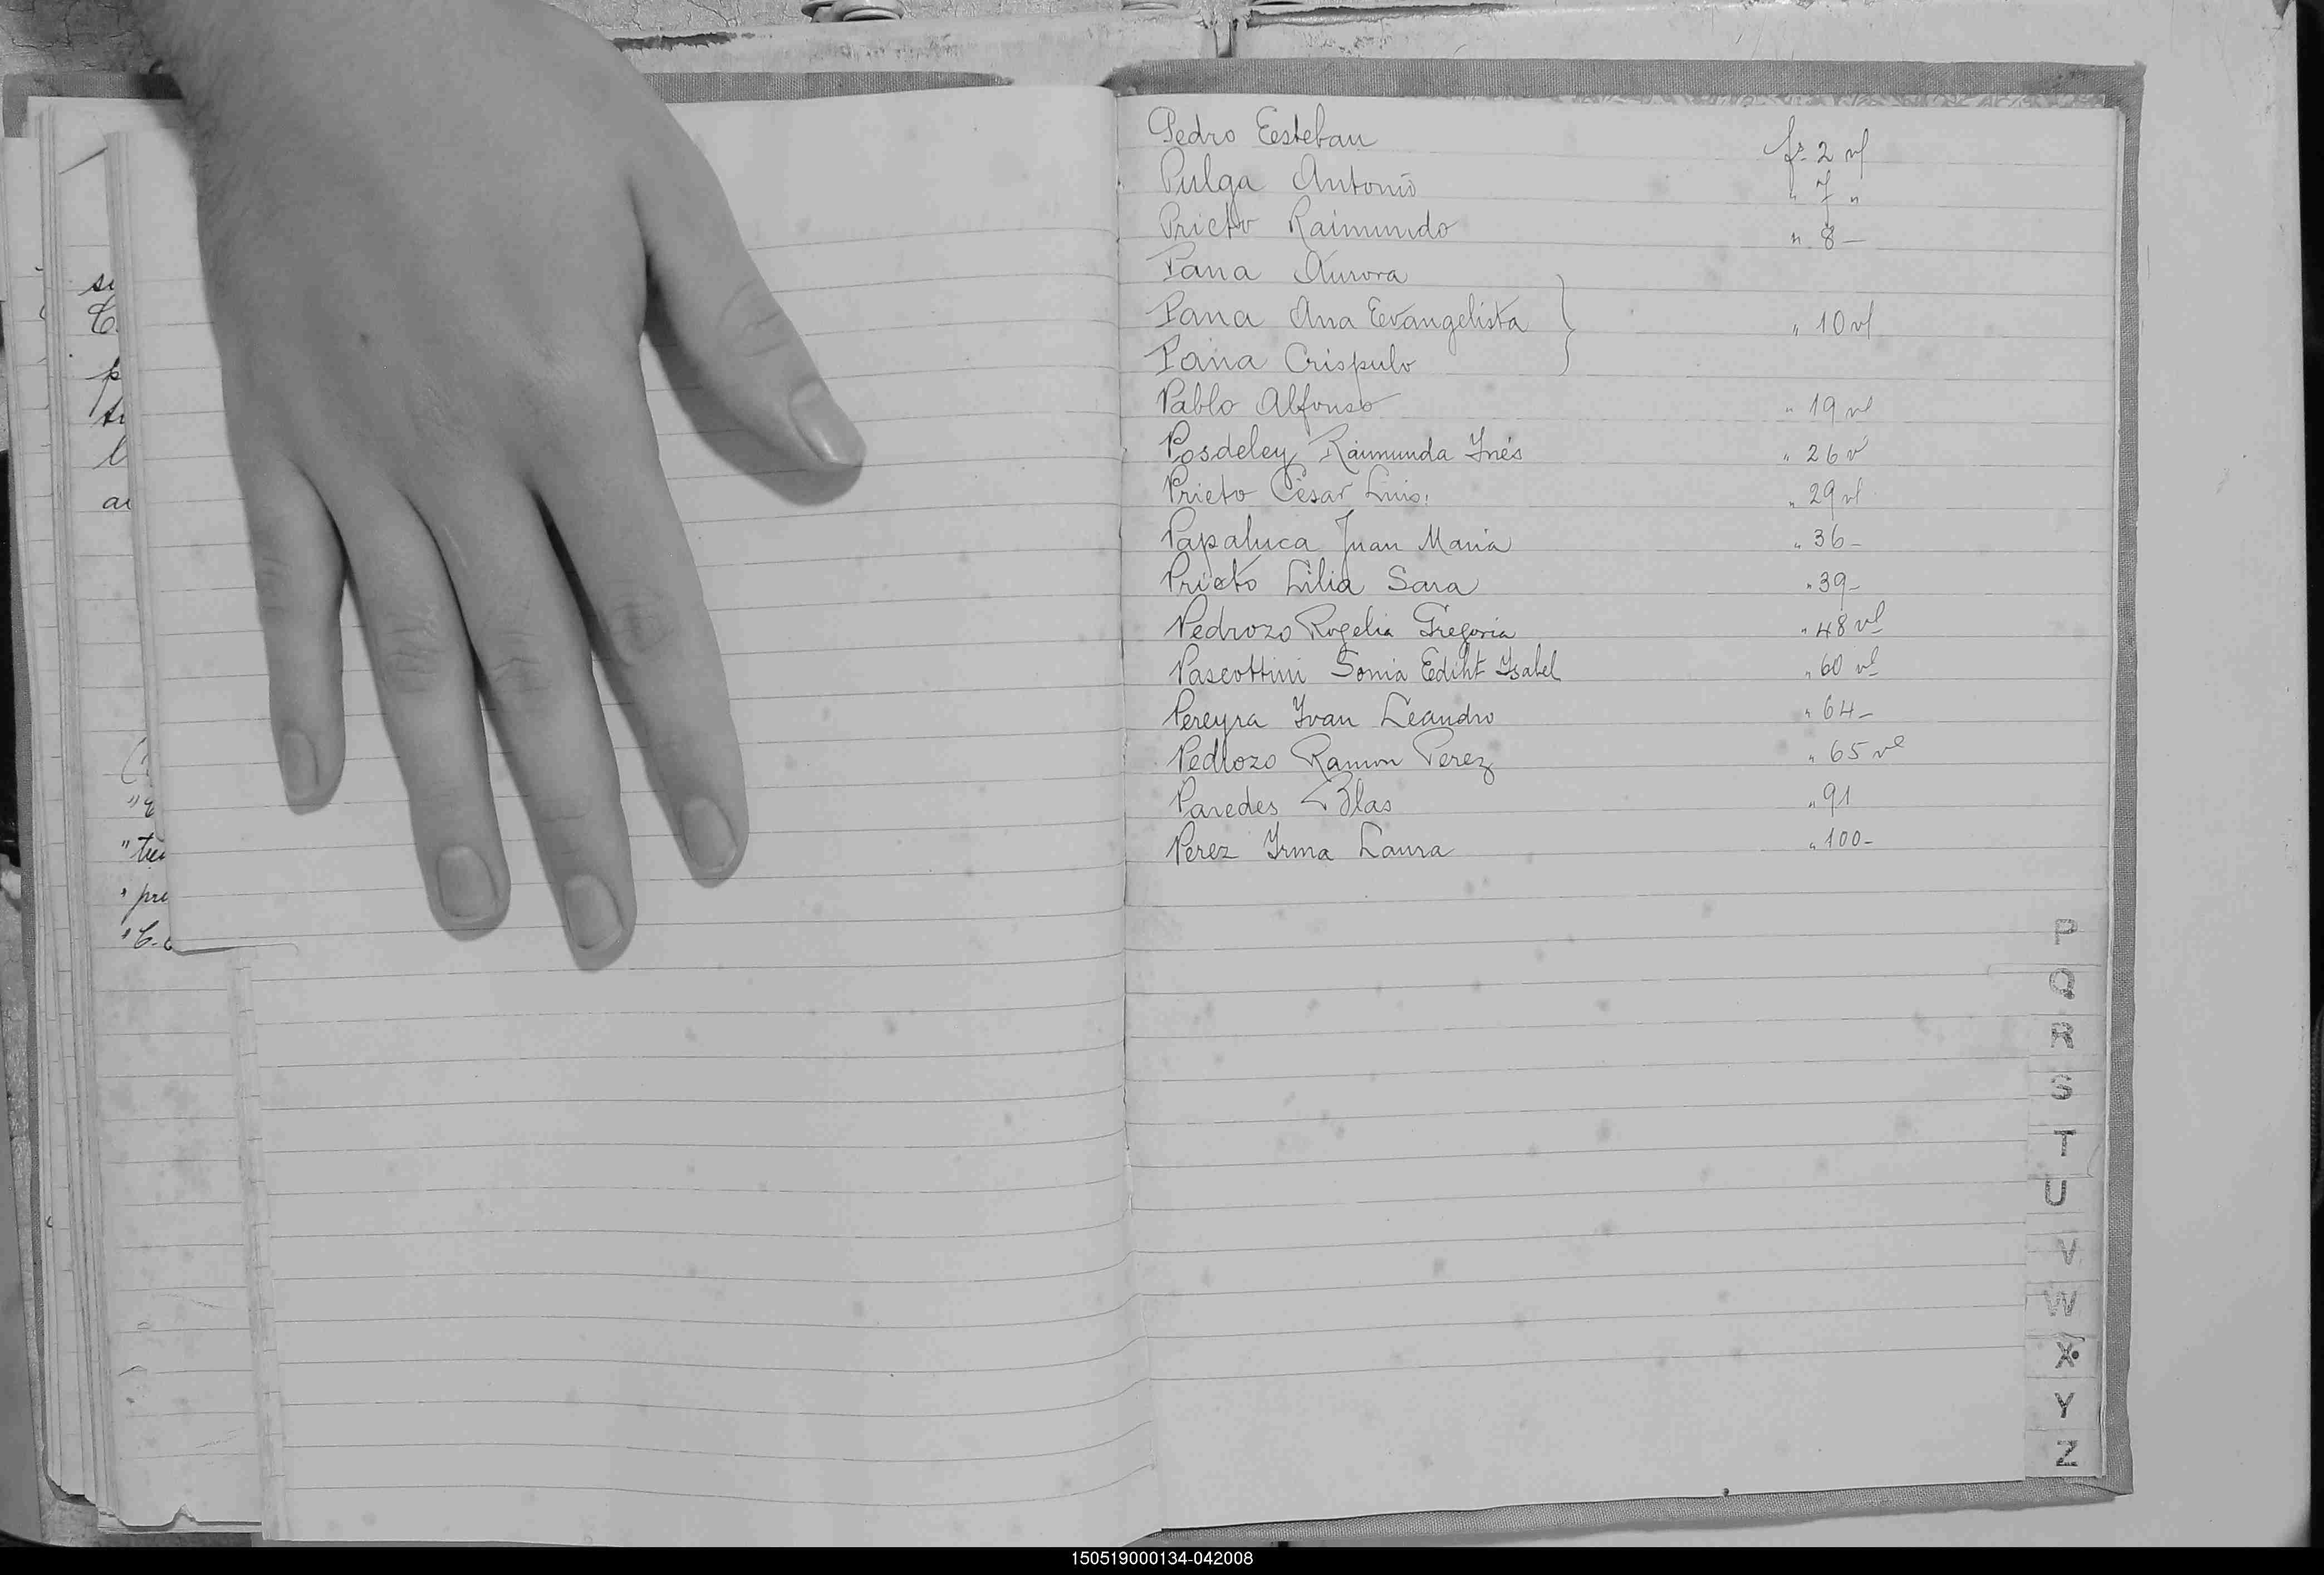 su
C.
p
tu
l
au
" tu
" pre
" C.
Pedro Eesteban fs 2 vl
Pulga Antonio " 7 "
Prieto Raimundo " 8 —
Pana Aurora
Pana Ana Eevangelista } " 10 vl
Pana Crispulo
Pablo Alfonso " 19 vl
Posdeley Raimunda Inés " 26 v
Prieto César Luis. " 29 vl
Papaluca Juan Maria " 36 -
Prieto Lilia Sara " 39 -
Pedrozo Rogelia Gregoria " 48 vl
Pascottini Sonia Ediht Isabel " 60 vl
Pereyra Ivan Leandro " 64 -
Pedrozo Ramon Perez " 65 vl
Paredes Blas " 91
Perez Irma Laura " 100 -
P
Q
R
S
T
U
V
W
X
Y
Z
150519000134-042008